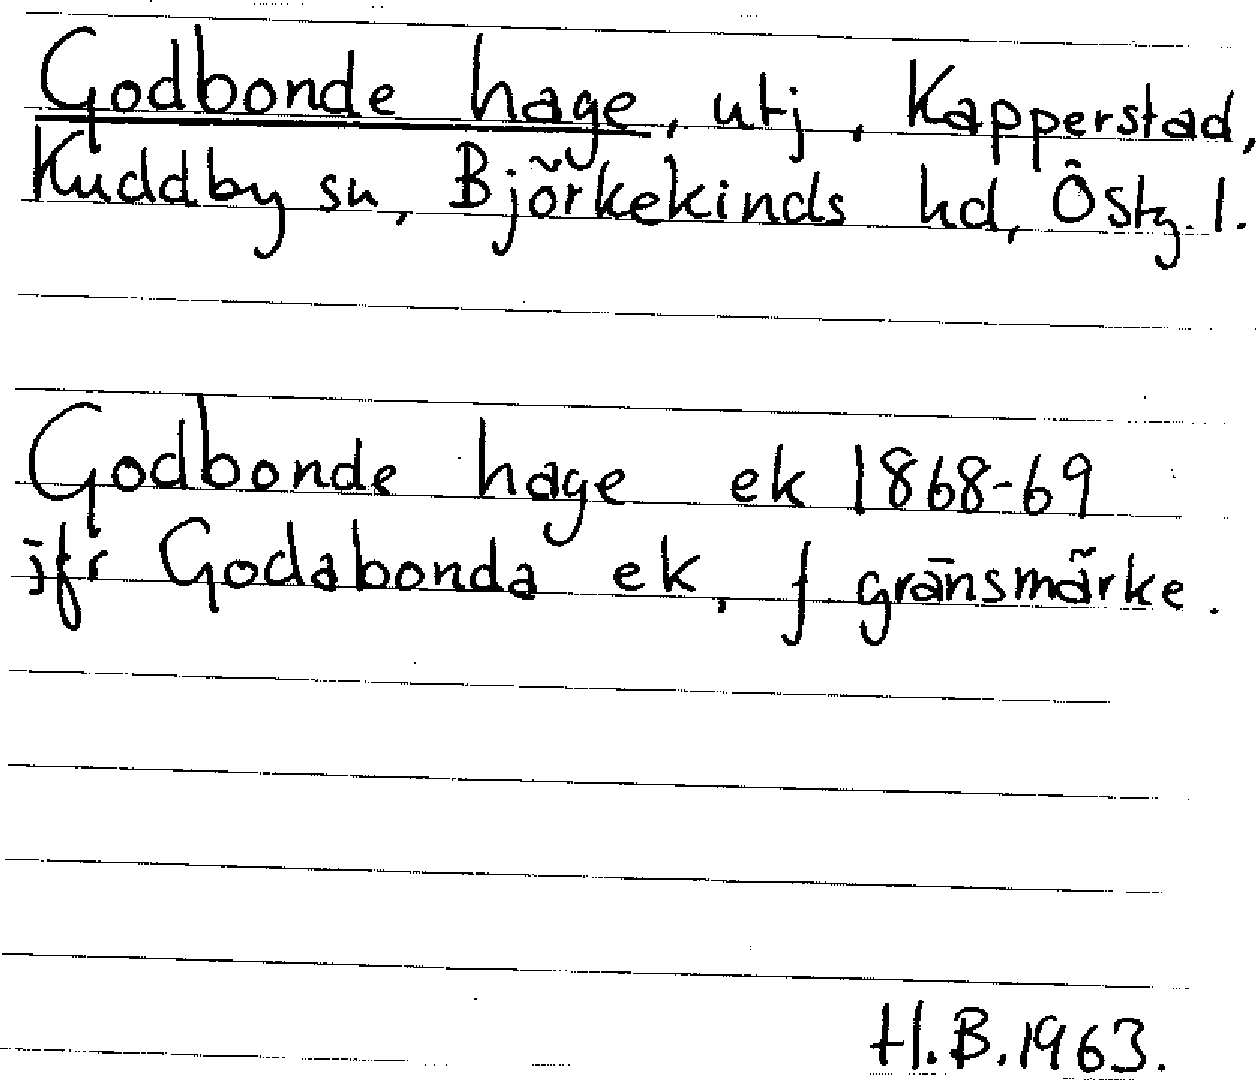 Godbonde hage, utj, Kapperstad,
Kuddby sn, Björkekinds hd, Östg. l.
Godbonde hage ek 1868-69
jfr Godabonda ek, f gränsmärke.
H.B. 1963.